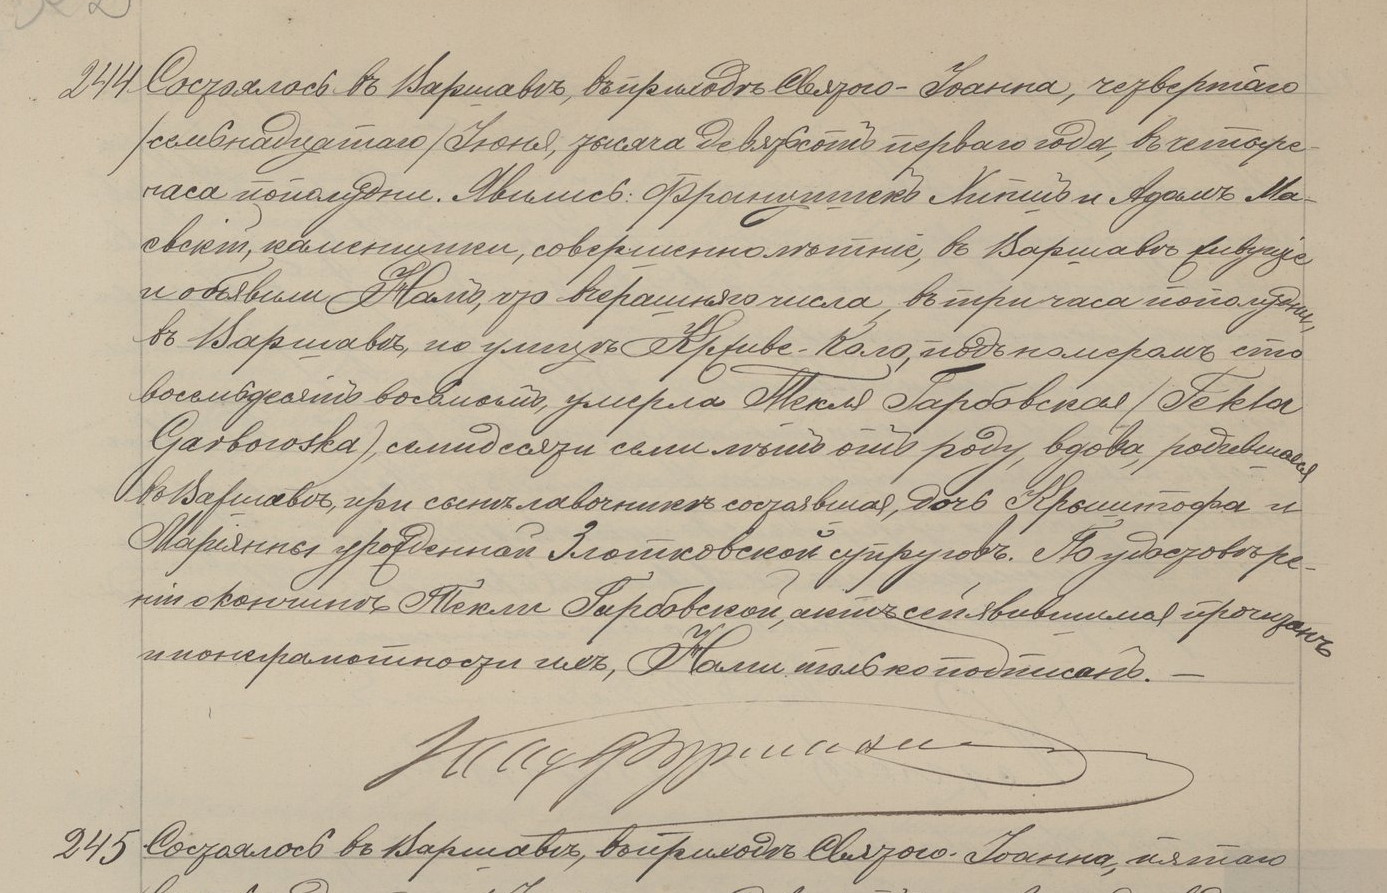 244 Состоялось въ Варшавѣ, въ приходѣ Святого-Іоанна, четвертаго
/семнадцатаго/ Іюня, тысяча девятьсотъ перваго года, въ четыре
часа пополудни. Явились: Францишекъ Хипшъ и Адамъ Ма-
евскій, каменщики, совершеннолѣтніе, въ Варшавѣ живущіе
и объявили Намъ, что вчерашняго числа, въ три часа пополудни,
въ Варшавѣ, по улицѣ Крживе-Коло, подъ номеромъ сто
восемьдесятъ восьмымъ, умерла Текля Гарбовская /Tekla
Garbowska), семидесяти семи лѣтъ отъ роду, вдова, родившаяся
въ Варшавѣ, при сынѣ лавочникѣ состоявшая, дочь Крыштофа и
Маріянны урожденной Злотковской супруговъ. По удостовѣре-
ніи о кончинѣ Текли Гарбовской, актъ сей явившимся прочитанъ
и по неграмотности ихъ, Нами только подписанъ. —
245 Состоялось въ Варшавѣ, въ приходѣ Святого-Іоанна, пятаго